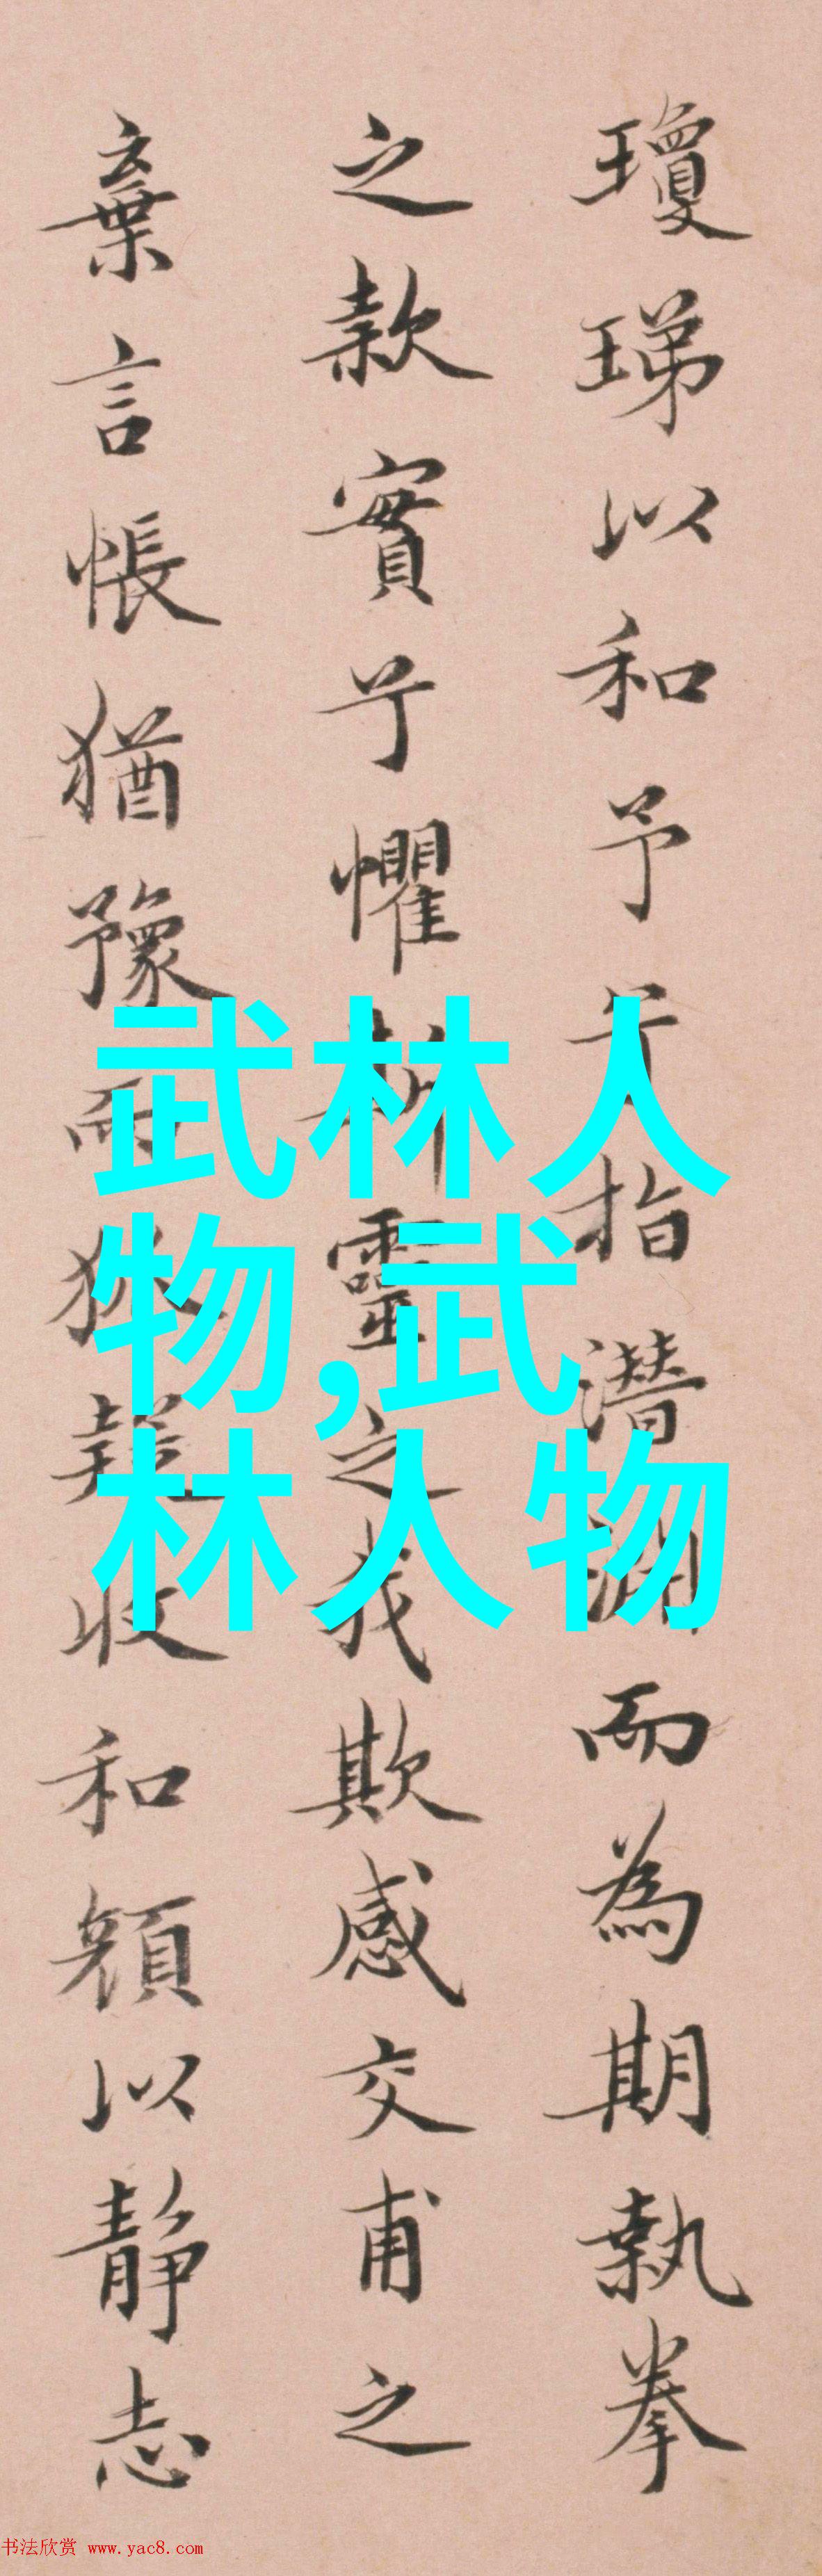 瓊珶以和予兮指潛淵而為期執拳
之款實兮懼斯靈之我欺感交甫之
棄言悵猶豫而狐疑收和顔以静志
武林人
物,武
林人物
书法欣赏 www.yac8.com